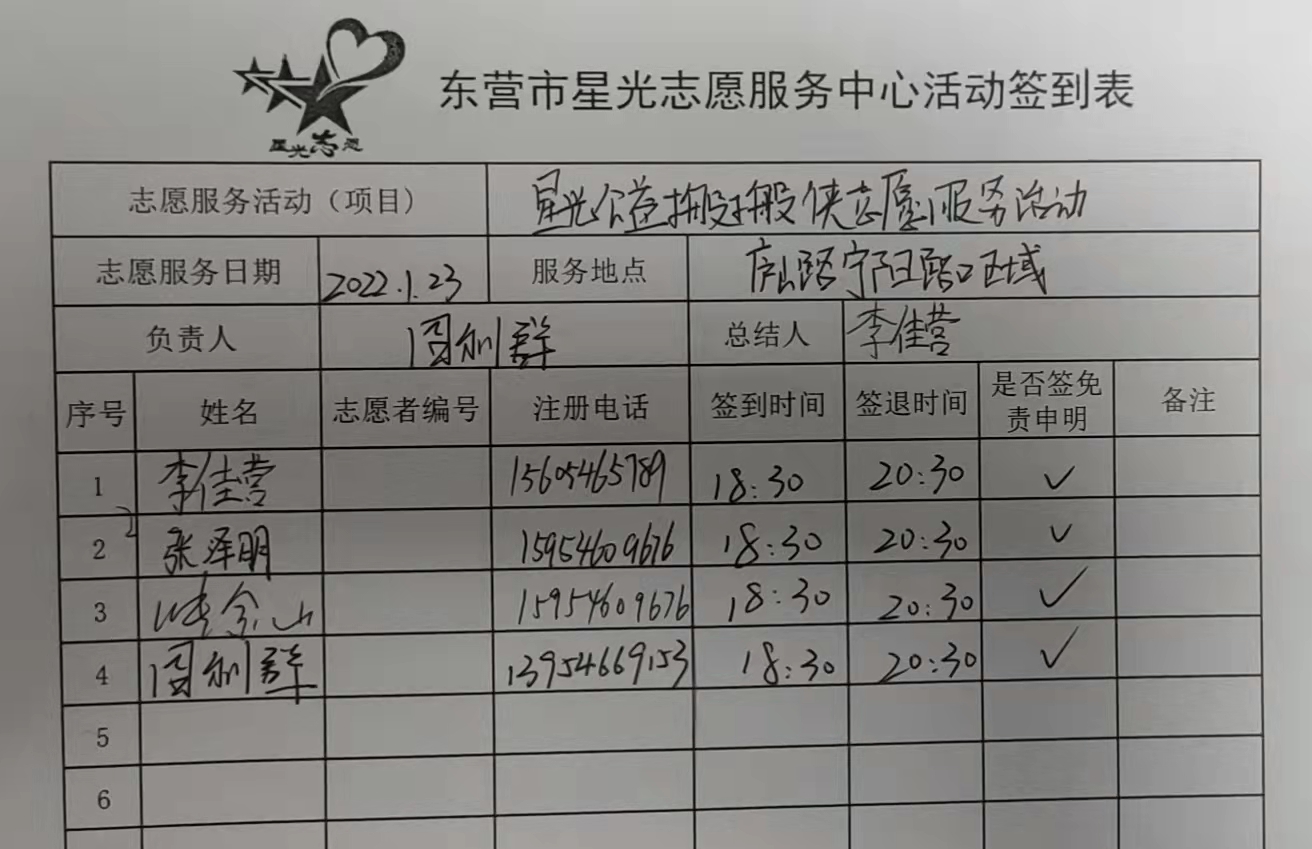 星光志愿
东营市星光志愿服务中心活动签到表
志愿服务活动（项目） 星光公益搬搬侠志愿服务活动
志愿服务日期 2022.1.23 服务地点 庐山路宁阳路口区域
负责人 闫利群 总结人 李佳营
序号 姓名 志愿者编号 注册电话 签到时间 签退时间 是否签免责申明 备注
1 李佳营 15605465789 18:30 20:30 ✓
2 张泽明 15954609676 18:30 20:30 ✓
3 15954609676 18:30 20:30 ✓
4 闫利群 13954669153 18:30 20:30 ✓
5
6